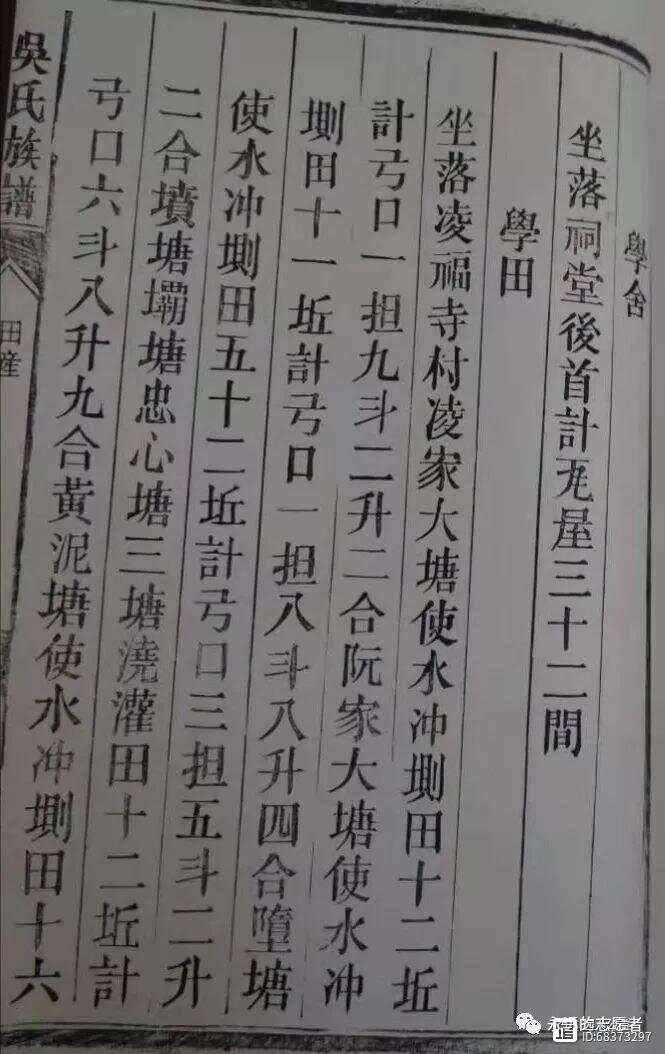 學舍
坐落祠堂後首計瓦屋三十二間
學田
坐落凌福寺村凌家大塘使水冲堋田十二坵
計弓口一担九斗二升二合阮家大塘使水冲
堋田十一坵計弓口一担八斗八升四合墮塘
使水冲堋田五十二坵計弓口三担五斗二升
二合墳塘壩塘忠心塘三塘澆灌田十二坵計
弓口六斗八升九合黃泥塘使水冲堋田十六
吳氏族譜
田産
永新的志愿者
ID:68373297